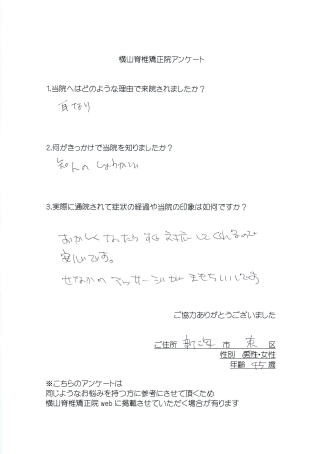 横山脊椎矯正院アンケート
1.当院へはどのような理由で来院されましたか？
耳なり
2.何がきっかけで当院を知りましたか？
知人のしょうかい
3.実際に通院されて症状の経過や当院の印象は如何ですか？
おかしくなったらすぐ対応してくれるので
安心です。
せなかのマッサージがきもちいいです
ご協力ありがとうございました
ご住所 新潟 市 東 区
性別 男性・女性
年齢 45 歳
※こちらのアンケートは
同じようなお悩みを持つ方に参考にさせて頂くため
横山脊椎矯正院 web に掲載させていただく場合が有ります